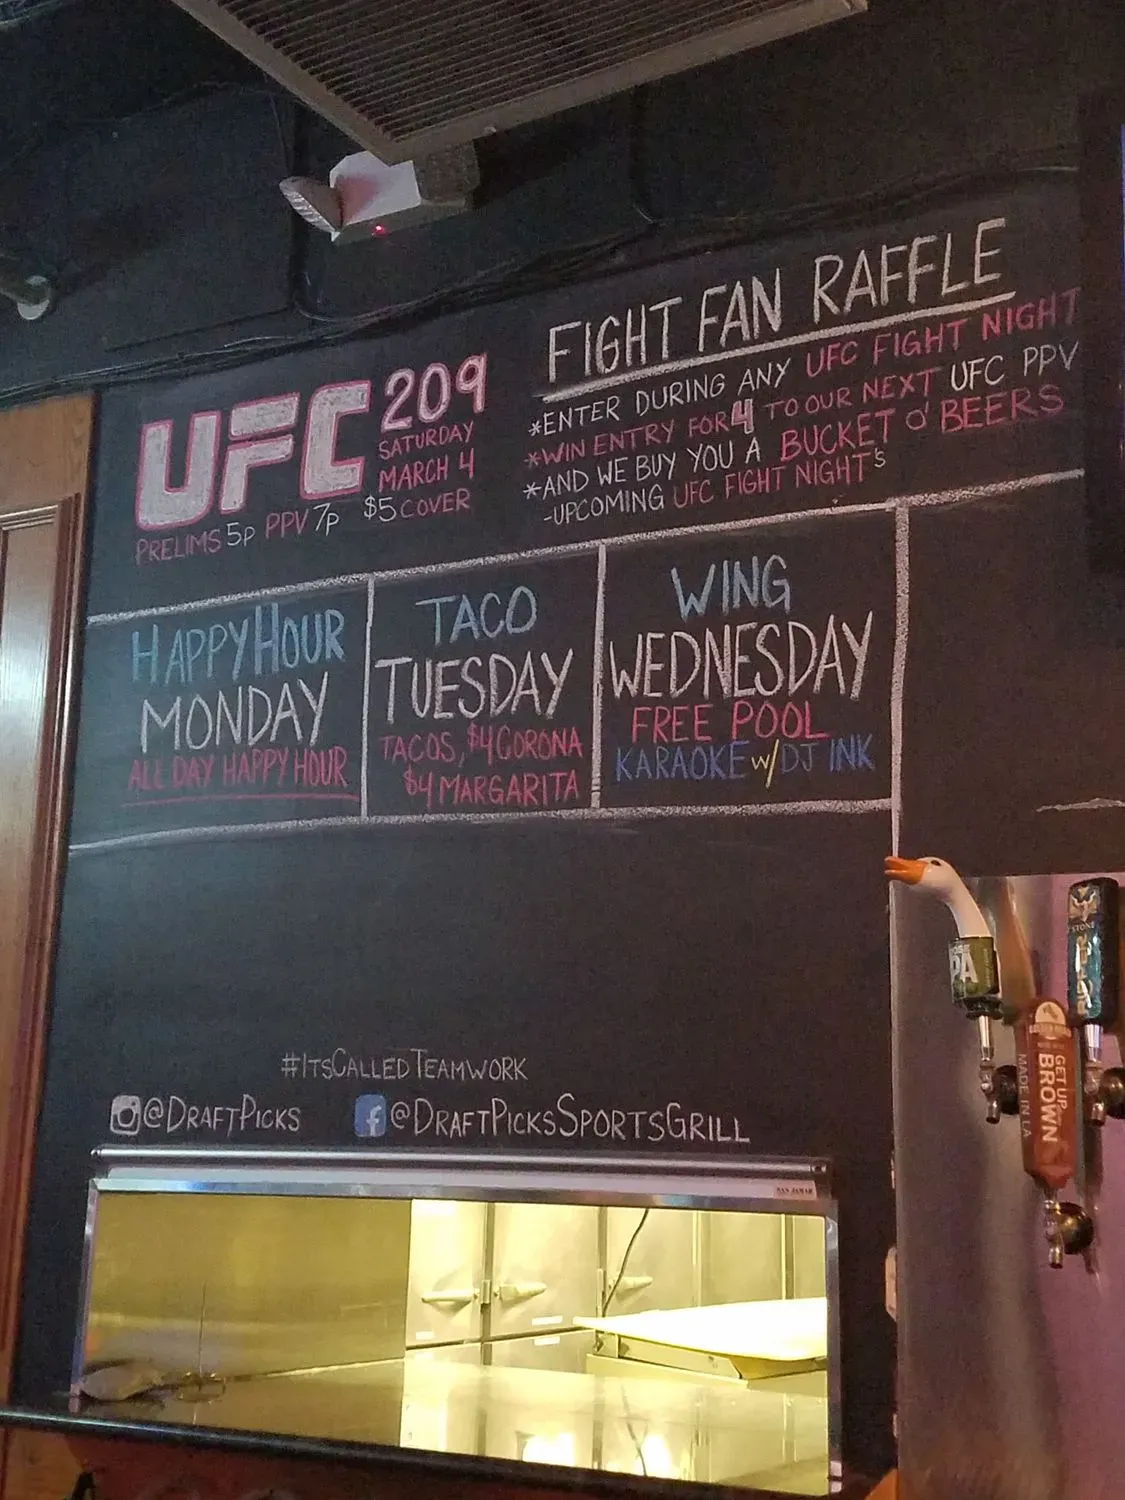 UFC 209
SATURDAY
MARCH 4
PRELIMS 5P PPV 7P $5 COVER
FIGHT FAN RAFFLE
*ENTER DURING ANY UFC FIGHT NIGHT
*WIN ENTRY FOR 4 TO OUR NEXT UFC PPV
*AND WE BUY YOU A BUCKET O' BEERS
-UPCOMING UFC FIGHT NIGHT'S
HAPPY HOUR
MONDAY
ALL DAY HAPPY HOUR
TACO
TUESDAY
TACOS, $4 CORONA
$4 MARGARITA
WING
WEDNESDAY
FREE POOL
KARAOKE W/ DJ INK
#ITSCALLEDTEAMWORK
@DRAFTPICKS
@DRAFTPICKSSPORTSGRILL
STONE
IPA
GET UP
BROWN
MADE IN LA